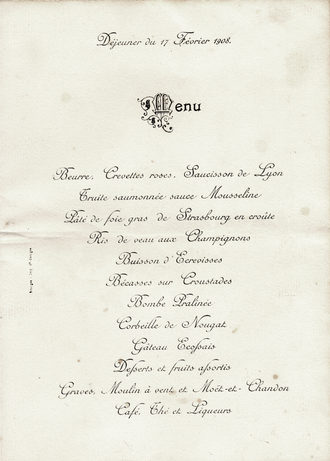 Déjeuner du 17 Février 1908.
Menu
Beurre, Crevettes roses, Saucisson de Lyon
Truite saumonnée sauce Mousseline
Pâté de foie gras de Strasbourg en croûte
Ris de veau aux Champignons
Buisson d'Ecrevisses
Bécasses sur Croustades
Bombe Pralinee
Corbeille de Nougat
Gâteau Ecossais
Desserts et fruits assortis
Graves, Moulin à vent et Moët-et-Chandon
Café, Thé et Liqueurs